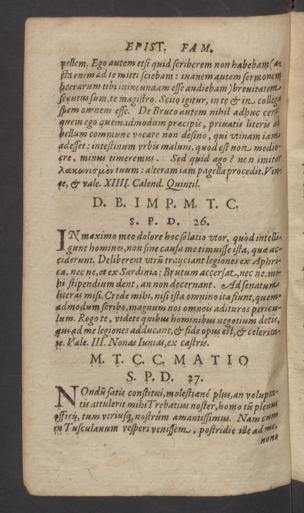 EPIST. FAM.
uellem. Ego autem etsi quid scriberem non habebam (ac
sta enim ad te mitti sciebam: inanem autem sermonem
literarum tibi iniucundam esse audiebam) breuitatem
secutus sum, te magistro. Scito igitur, in te & in collega
spem omnem esse. De Bruto autem nihil adhuc certi:
quem ego quemadmodum præcipis, priuatis literis ad
bellum commune vocare non desino, qui vtinam iam
adesset: intestinum vrbis malum, quod est non medio-
cre, minus timeremus. Sed quid ago? non imitor
λακωνισμὸν tuum: altera iam pagella procedit. Vin-
ce, & vale. XIIII. Calend. Quintil.
D. B. IMP. M. T. C.
S. P. D. 26.
IN maximo meo dolore hoc solatio vtor, quòd intelli-
gunt homines, non sine causa me timuisse ista, quæ ac-
ciderunt. Deliberent vtrũ traijciant legiones ex Aphri-
ca, nec ne, & ex Sardinia: Brutum accersat, nec ne: mi-
hi stipendium dent, an non decernant. Ad senatum
literas misi. Crede mihi, nisi ista omnino ita fiunt, quem-
admodum scribo, magnum nos omneis adituros pericu-
lum. Rogo te, videte quibus hominibus negotium detis,
qui ad me legiones adducant, & fide opus est, & celerita-
te. Vale. III. Nonas Iunias, ex castris.
M. T. C. C. MATIO
S. P. D. 27.
NOndũ satis constitui, molestiæ né plus, an volupta-
tis attulerit mihi Trebatius noster, homo tũ plenus
officij, tum vtriusq; nostrûm amantissimus. Nam cum
in Tusculanum vesperi venissem, postridie ille ad me,
nond